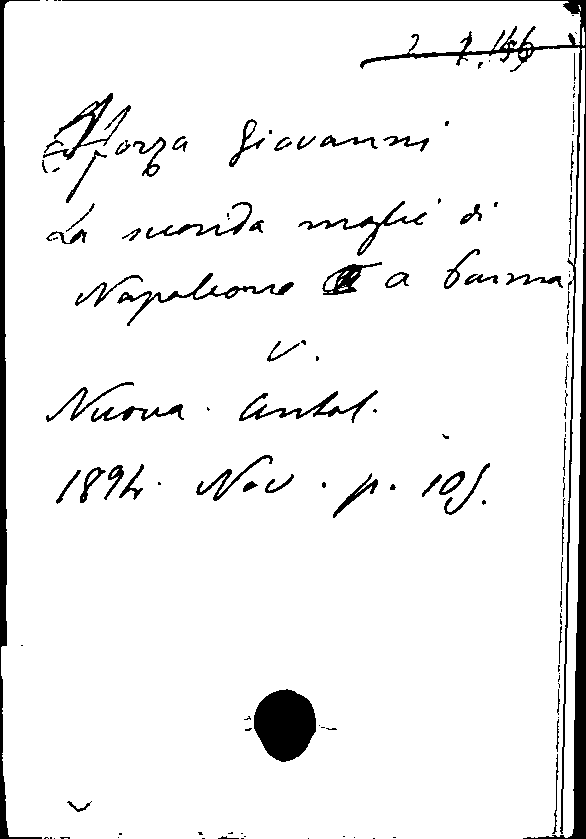 Sforza Giovanni
La seconda moglie di
Napoleone I a Parma
V.
Nuova Antol.
1894. Nov. p. 105.